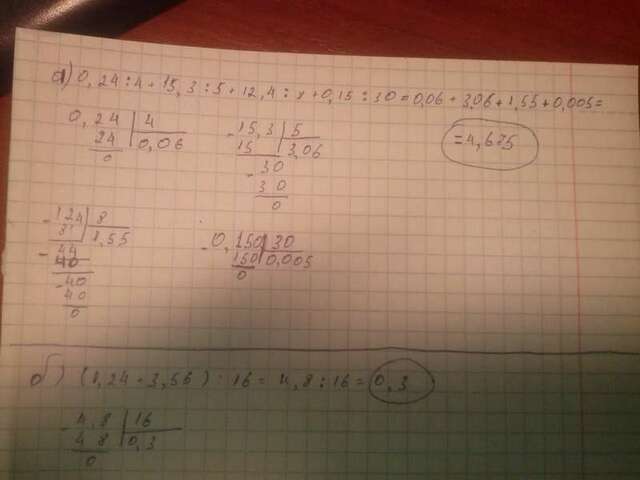 а) 0,24 : 4 + 15,3 : 5 + 12,4 : 8 + 0,15 : 30 = 0,06 + 3,06 + 1,55 + 0,005 =
= 4,675
0,24 | 4
24 | 0,06
0
- 15,3 | 5
15 | 3,06
- 30
30
0
- 124 | 8
8 | 1,55
- 44
40
- 40
40
0
- 0,150 | 30
150 | 0,005
0
б) (1,24 + 3,56) : 16 = 4,8 : 16 = 0,3
- 4,8 | 16
4 8 | 0,3
0